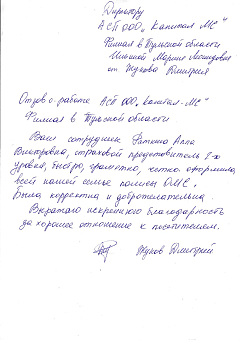 Директору
АСП ООО „Капитал МС"
Филиал в Тульской области
Марине Леонидовне
от Жукова Дмитрия
Отзыв о работе АСП ООО „Капитал-МС"
Филиал в Тульской области
Ваш сотрудник Фатина Алла
Викторовна, страховой представитель 2-х
уровня, быстро, грамотно, четко оформила
всей нашей семье полисы ОМС.
Была корректна и доброжелательна.
Выражаю искреннюю благодарность
за хорошее отношение к посетителям.
Жуков Дмитрий